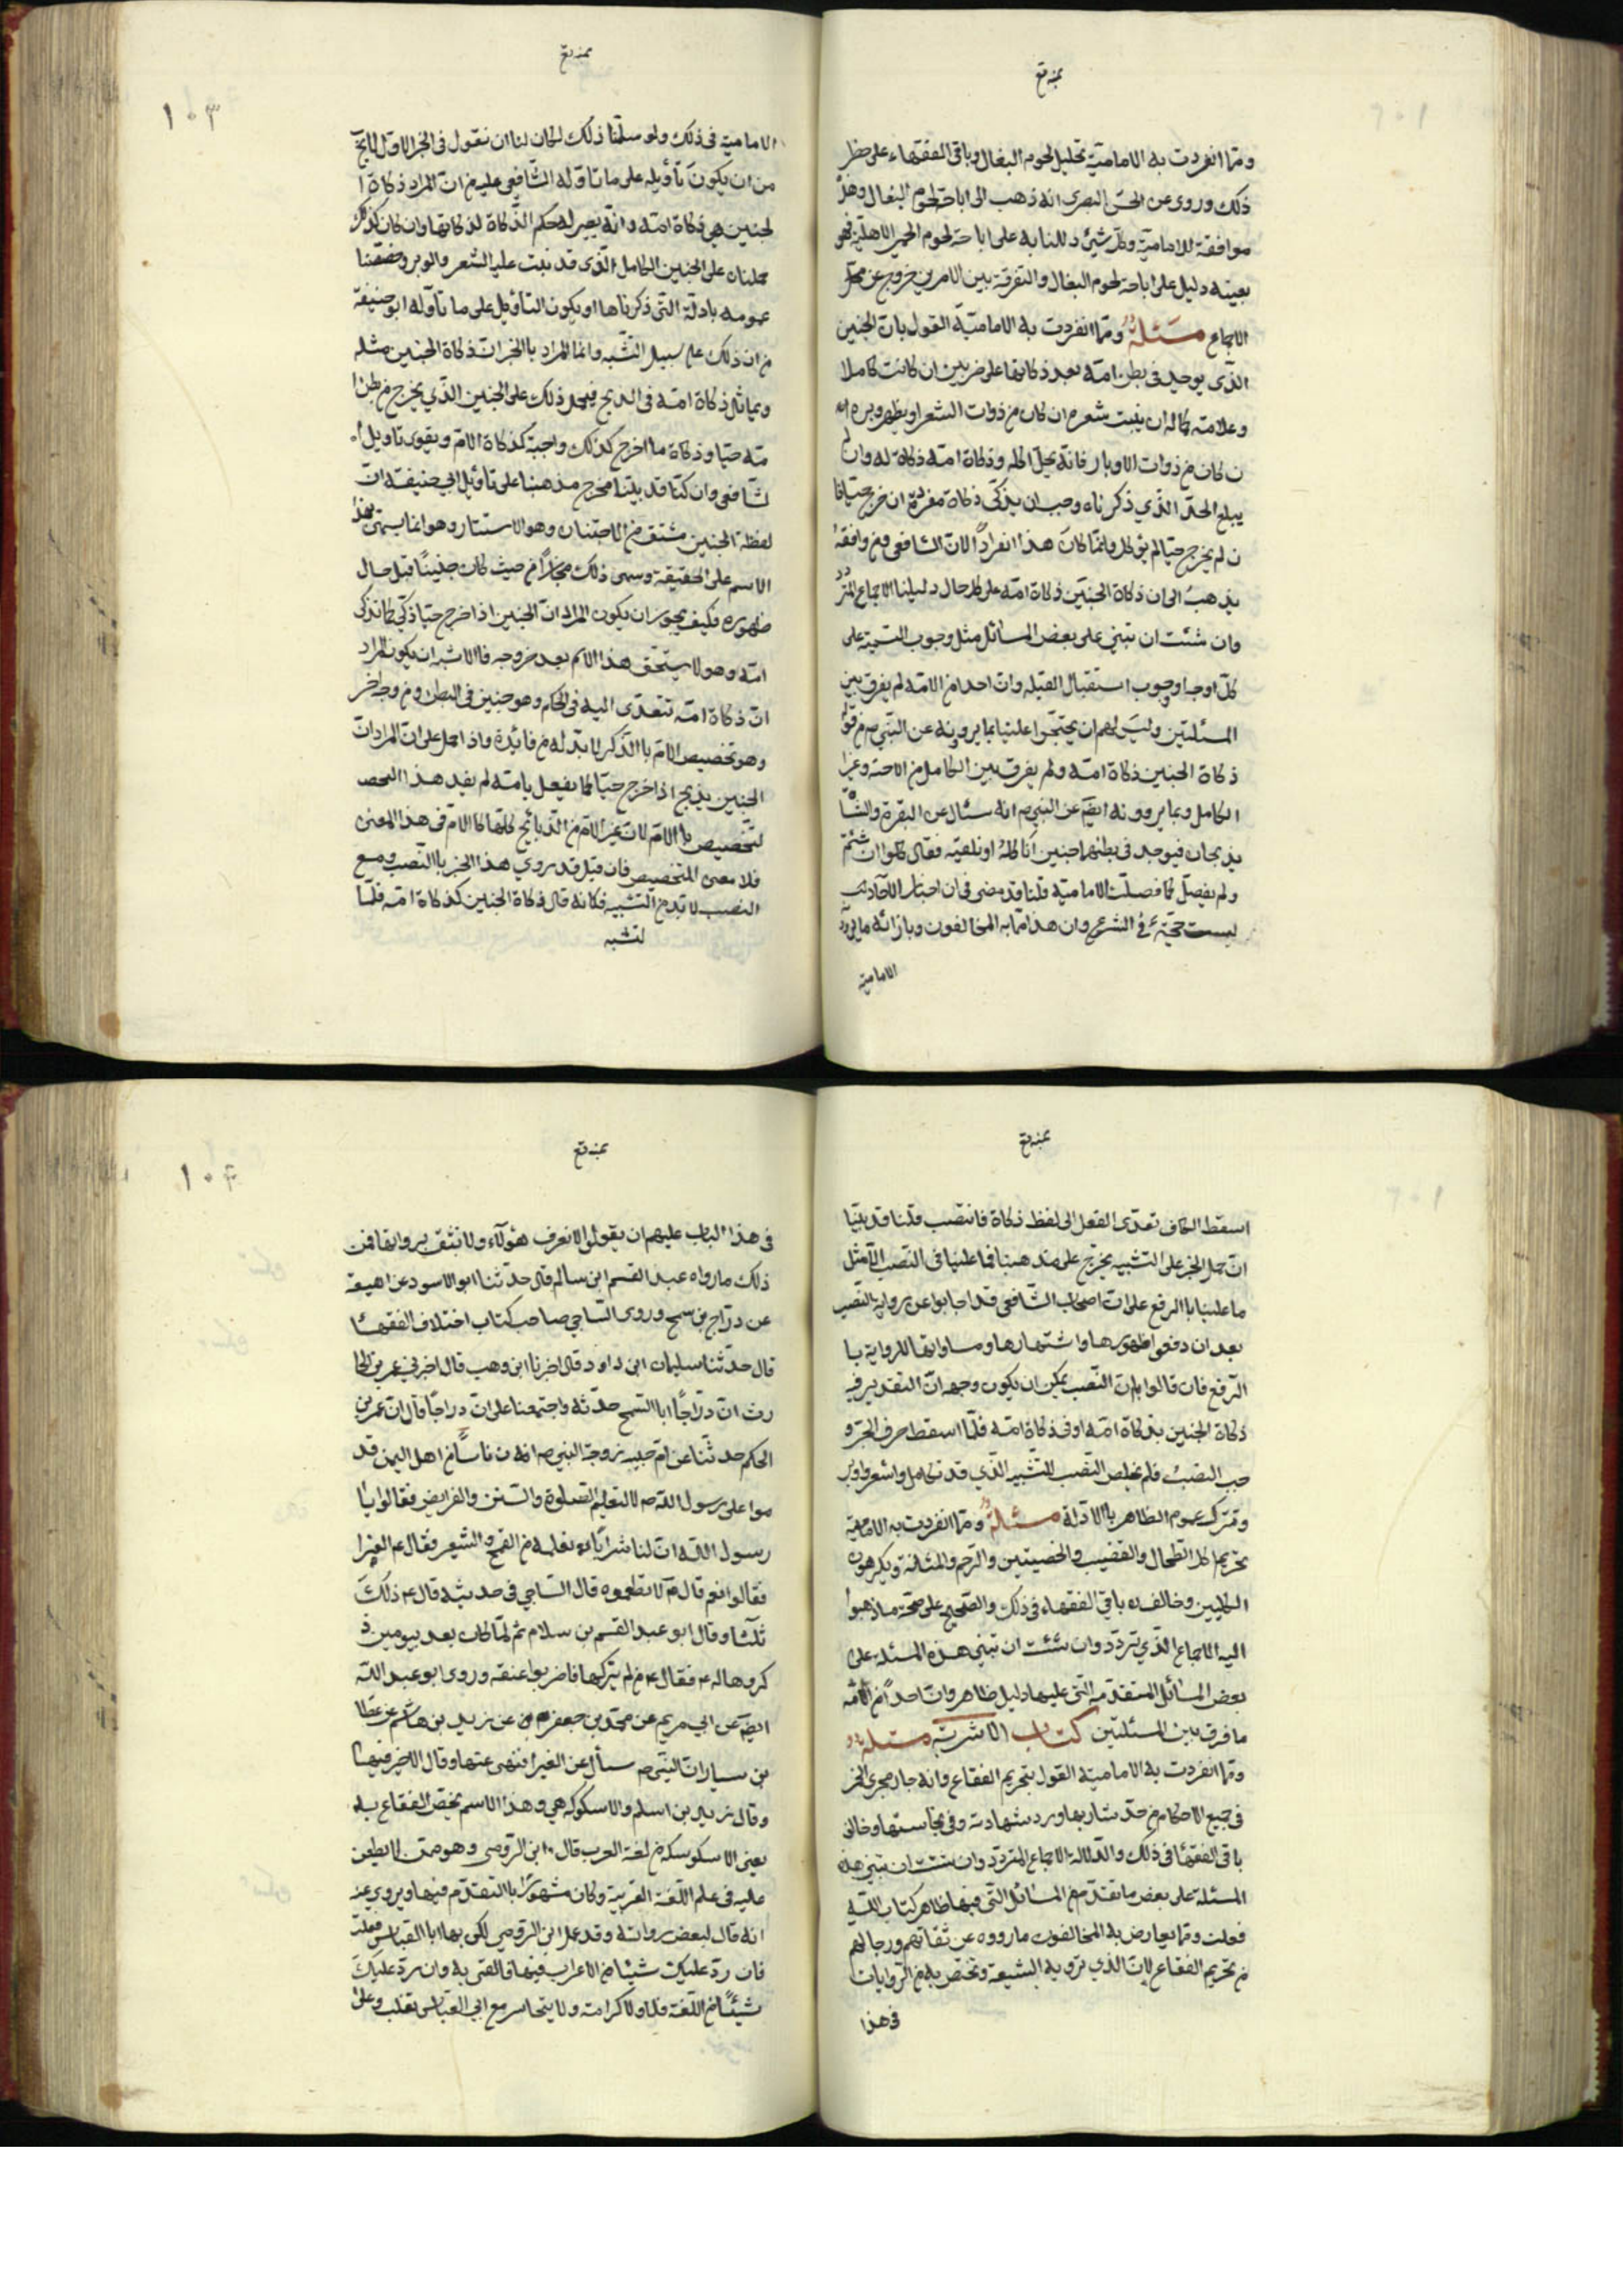 ومما انفردت به الامامية تحليل لحوم البغال وباقى الفقهاء على حظر
ذلك وروى عن الحسن البصرى انه ذهب الى اباحة لحوم البغال وهذه
موافقة للامامية وكل شئ دللنا به على اباحة لحوم الحمر الاهلية فهو
بعينه دليل على اباحة لحوم البغال والتفرقة بين الامرين خروج عن
الاجماع مسئلة ومما انفردت به الامامية القول بان الجنين
الذى يوجد فى بطن امه بعد ذكاتها على ضربين ان كانت كاملا
وعلامته كماله ان ينبت شعره ان كان من ذوات الشعر او يظهر وبره ا
ن كان من ذوات الاوبار فانه يحل اكله وذكاة امه ذكاة له وان لم
يبلغ الحد الذي ذكرناه وجب ان يذكى ذكاة مفردة ان خرج حيا فا
ن لم يخرج حيا لم يؤكل وانما كان هذا انفرادًا لان الشافعى ومن وافقه
يذهب الى ان ذكاة الجنين ذكاة امه على كل حال دليلنا الاجماع المتردد
وان شئت ان تبنى على بعض المسائل مثل وجوب التسمية على
كل اوجه او وجوب استقبال القبله وان احدا من الامة لم يفرق بين
المسئلتين وليس لهم ان يحتجوا علينا بما يروونه عن النبى ص من قوله
ذكاة الجنين ذكاة امه ولم يفرق بين الكامل من الاجنة وغير
الكامل وبما يروونه ايضا عن النبى ص انه سئال عن البقرة والشاة
يذبحان فيوجد فى بطنهما جنين أنأكله او نلقيه فقال كلوا ان شئتم
ولم يفصل كما فصلت الامامية قلنا قد مضى فى ان اخبار الآحاد
ليست حجة فى الشرع وان هذا مما به المخالفون وبازائه ما يرويه
الامامية
١٠٣
الامامية فى ذلك ولو سلمنا ذلك لكان لنا ان نقول فى الخبر الاول
من ان يكون تأويله على ما تأوله الشافعى عليه من ان المراد ذكاة ا
لجنين هى ذكاة امه وانه يصير له حكم الذكاة لذكاتها وان كان كذلك
حملناه على الجنين الكامل الذى قد نبت عليه الشعر والوبر وخصصنا
عمومه بادلة التى ذكرناها او يكون التأويل على ما تأوله ابو حنيفة
من ان ذلك على سبيل التشبه وانما المراد بالخبر ان ذكاة الجنين مثله
ومماثل ذكاة امه فى الذبح فيحمل ذلك على الجنين الذي يخرج من بطن ا
مه حيا وذكاة ما اخرج كذلك واجبة كذكاة الام ويقوى تاويل ا
لشافعى وان كنا قد بينا مخرج مذهبنا على تأويل ابى حنيفة ان
لفظة الجنين مشتق من الاجتنان وهو الاستتار وهو انما يسمى بهذا
الاسم على الحقيقة وسمى ذلك مجازًا من حيث كان جنينًا قبل حال
ظهوره فكيف يجوز ان يكون المراد ان الجنين اذا خرج حيا ذكي كما تذكى
امه وهو لا يستحق هذا الاسم بعد خروجه فالاشبه ان يكون المراد
ان ذكاة امه تتعدى اليه فى الحكم وهو جنين فى البطن ومن وجه اخر
وهو تخصيص الام بالذكر لا بد له من فائدة واذا حمل على ان المراد ان
الجنين يذبح اذا خرج حيا كما يفعل بامه لم يفد هذا
لتخصيص بالام لان غير الام من الذبائح كلها كالام فى هذا المعنى
فلا معنى لتخصيص فان قيل قد روي هذا الخبر بالنصب ومع
النصب لا بد من التشبيه فكانه قال ذكاة الجنين كذكاة امه فلما
لتشبه
اسقط الكاف تعدى الفعل الى لفظ ذكاة فانتصب قلنا قد بينا
ان حمل الخبر على التشبيه يخرج على مذهبنا فما علينا فى النصب الا مثل
ما علينا بالرفع على ان اصحاب الشافعى قد اجابوا عن رواية النصب
بعد ان دفعوا ظهورها واشتهارها ومساواتها للرواية با
الرفع فان قالوا بان النصب يمكن ان يكون وجهه ان التقدير فيه
ذكاة الجنين بذكاة امه او فى ذكاة امه فلما اسقط حرف الجر و
جب النصب فلم يخلص النصب للتشبيه الذي قد تكامل واشعر واوبر
ونترك عموم الظاهر بالادلة مسئلة ومما انفردت به الامامية
تحريم اكل الطحال والقضيب والخصيتين والرحم والمثانة ويكرهون
الكليتين وخالف باقي الفقهاء فى ذلك والصحيح على صحة ما ذهبوا
اليه الاجماع الذي يتردد وان شئت ان تبنى هذه المسئلة على
بعض المسائل المتقدمة التى عليها دليل ظاهر وان احدًا من الامة
ما فرق بين المسئلتين كتاب الاشربة مسئلة
ومما انفردت به الامامية القول بتحريم الفقاع وانه جار مجرى الخمر
فى جميع الاحكام من حد شاربها ورد شهادته وفى نجاستها وخالف
باقى الفقهاء فى ذلك والدلالة الاجماع المتردد وان شئت ان تبنى هذه
المسئلة على بعض ما تقدم من المسائل التى فيها ظاهر كتاب الله
فعلت ومما يعارض به المخالفون ما رووه عن ثقاتهم ورجالهم
من تحريم الفقاع لان الذي ترويه الشيعة وتختص به من الروايات
فى هذا
١٠٤
فى هذا الباب عليهم ان يقولوا لا نعرف هؤلاء ولا نثق برواتها فمن
ذلك ما رواه عبد القسم ابن سالم قال حدثنا ابو الاسود عن لهيعة
عن دراج بن سمح وروى الساجي صاحب كتاب اختلاف الفقهاء
قال حدثنا سليمان ابن داود قال اخبرنا ابن وهب قال اخبرني عمر بن الحا
رث ان دراجًا ابا السمح حدثه واجتمعنا على ان دراجا قال ان عمر بن
الحكم حدثنا عن ام حبيبه زوجة النبي ص ان ناسًا من اهل اليمن قد
موا على رسول الله ص لتعليم الصلوة والسنن والفرايض فقالوا يا
رسول الله ان لنا شرابًا نعمله من القمح والشعير فقال ع الغبيرا
فقالوا نعم قال ع لا تطعموه قال الساجي فى حديثه قال ع ذلك
ثلثا وقال ابو عبد القسم بن سلام ثم لما كان بعد يومين ذ
كروها له ع فقال ع من لم يتركها فاضربوا عنقه وروى ابو عبد الله
ايضا عن ابي مريم عن محمد بن جعفر عن زيد بن عن عطا
بن يسار ان النبى ص سأل عن الغبيرا فنهى عنها وقال لا خير فيها
وقال زيد بن اسلم والاسكركه هي وهذا الاسم يختص الفقاع به
يعنى الاسكركه من لغة العرب قال ابن الرومى وهو ممن لا يطعن
عليه فى علم اللغة العربية وكان مشهورًا بالتقدم فيها ويروي عنه
انه قال لبعض رواته وقد عمل ابن الرومي لكي بها ابا العباس
فان رد عليك شيئا من الاعراب فيها فالقنى به وان رد عليك
شيئًا من اللغة فلا ولا كرامة ولا يتجاسر مع ابى العباس ثعلب وعلى